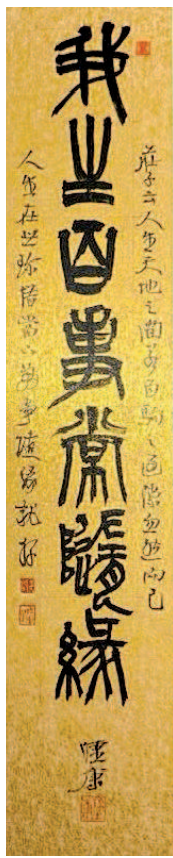 我生百事常隨緣
莊子云人生天地之間若白駒之過隙忽然而已
人生在世珍惜當下萬事隨緣就好
康